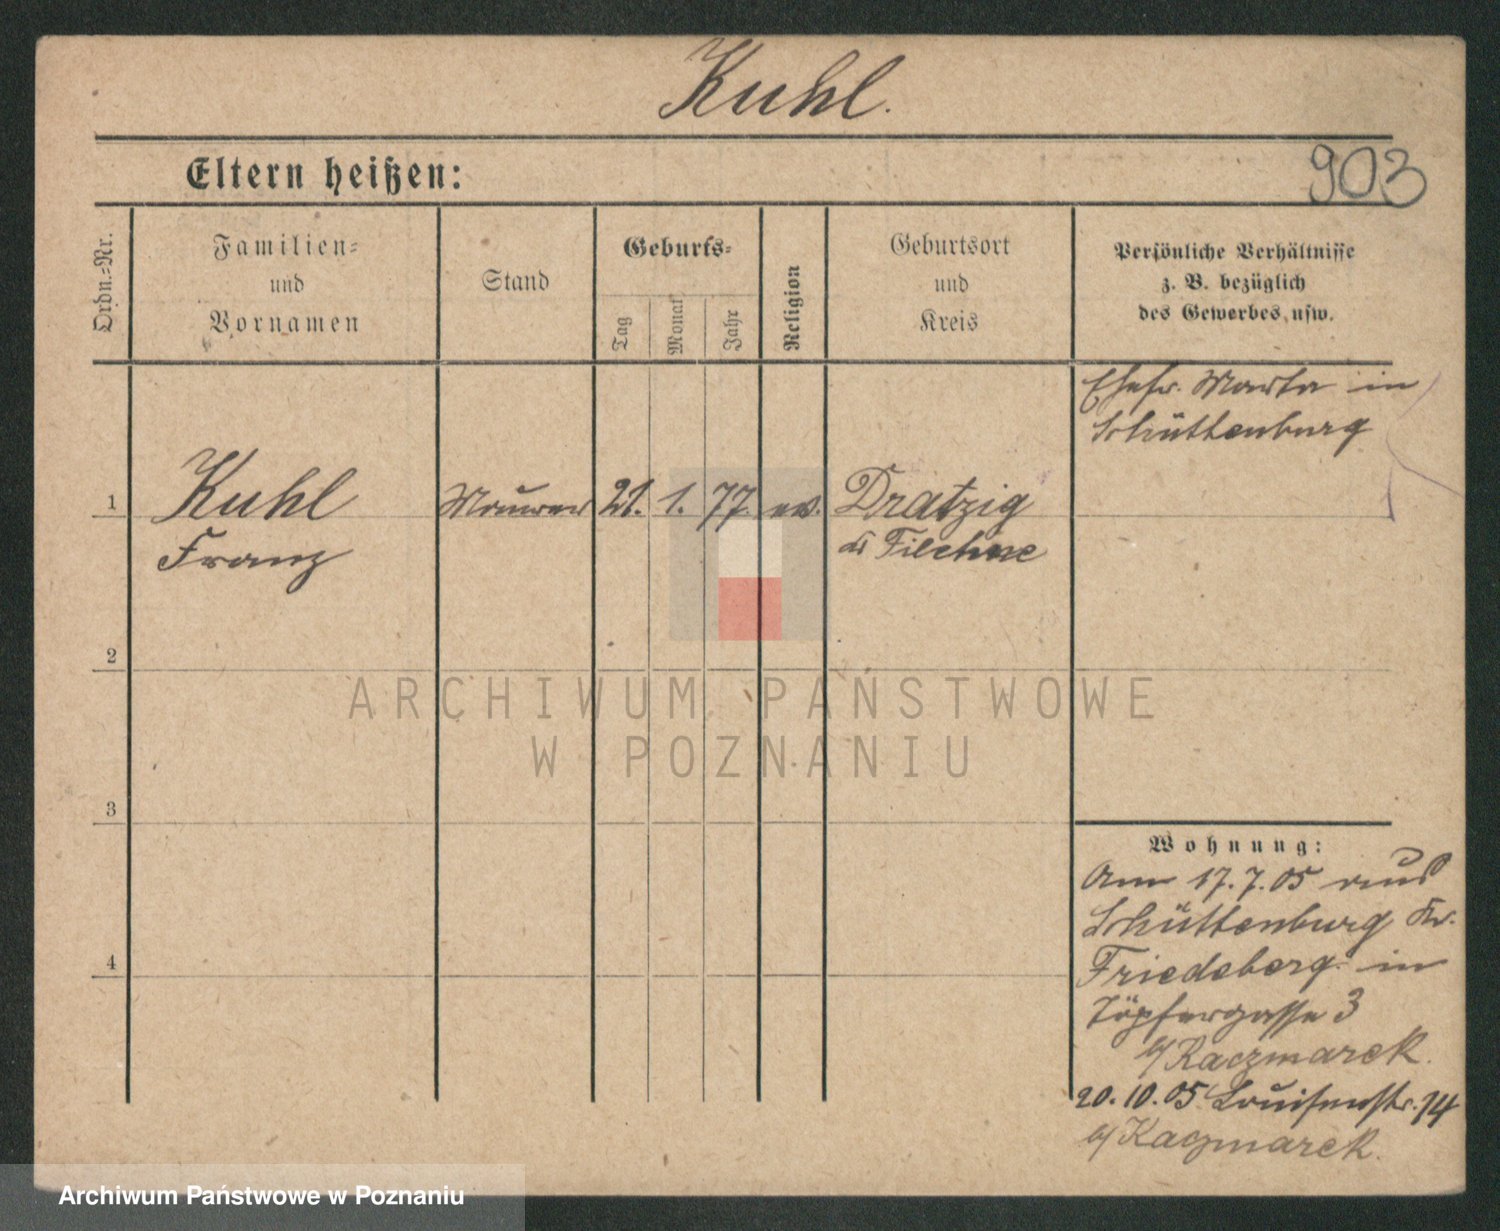 Kuhl.
Eltern heißen:
903
Ordn.=Nr.
Familien=
und
Vornamen
Stand
Geburts=
Tag
Monat
Jahr
Religion
Geburtsort
und
Kreis
Persönliche Verhältnisse
z. B. bezüglich
des Gewerbes usw.
Ehefr. Marta in
Schüttenburg
1
Kuhl
Franz
Maurer
21.
1.
77.
ev.
Dratzig
Filehne
2
3
4
Wohnung:
Am 17.7.05 aus
Schüttenburg Kr.
Friedeberg in
Töpfergasse 3
b/ Kaczmarek.
20.10.05 Louisenstr. 14
b/ Kaczmarek.
ARCHIWUM PAŃSTWOWE
W POZNANIU
Archiwum Państwowe w Poznaniu